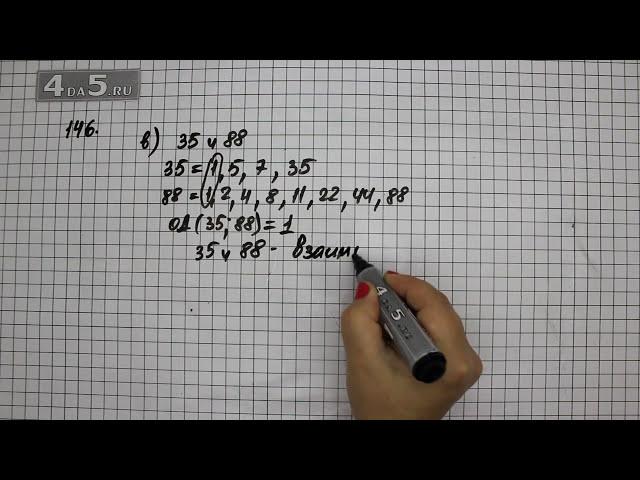 4DA5.RU
146.
в) 35 и 88
35 = 1, 5, 7, 35
88 = 1, 2, 4, 8, 11, 22, 44, 88
ОД (35; 88) = 1
35 и 88 - взаим
4 5